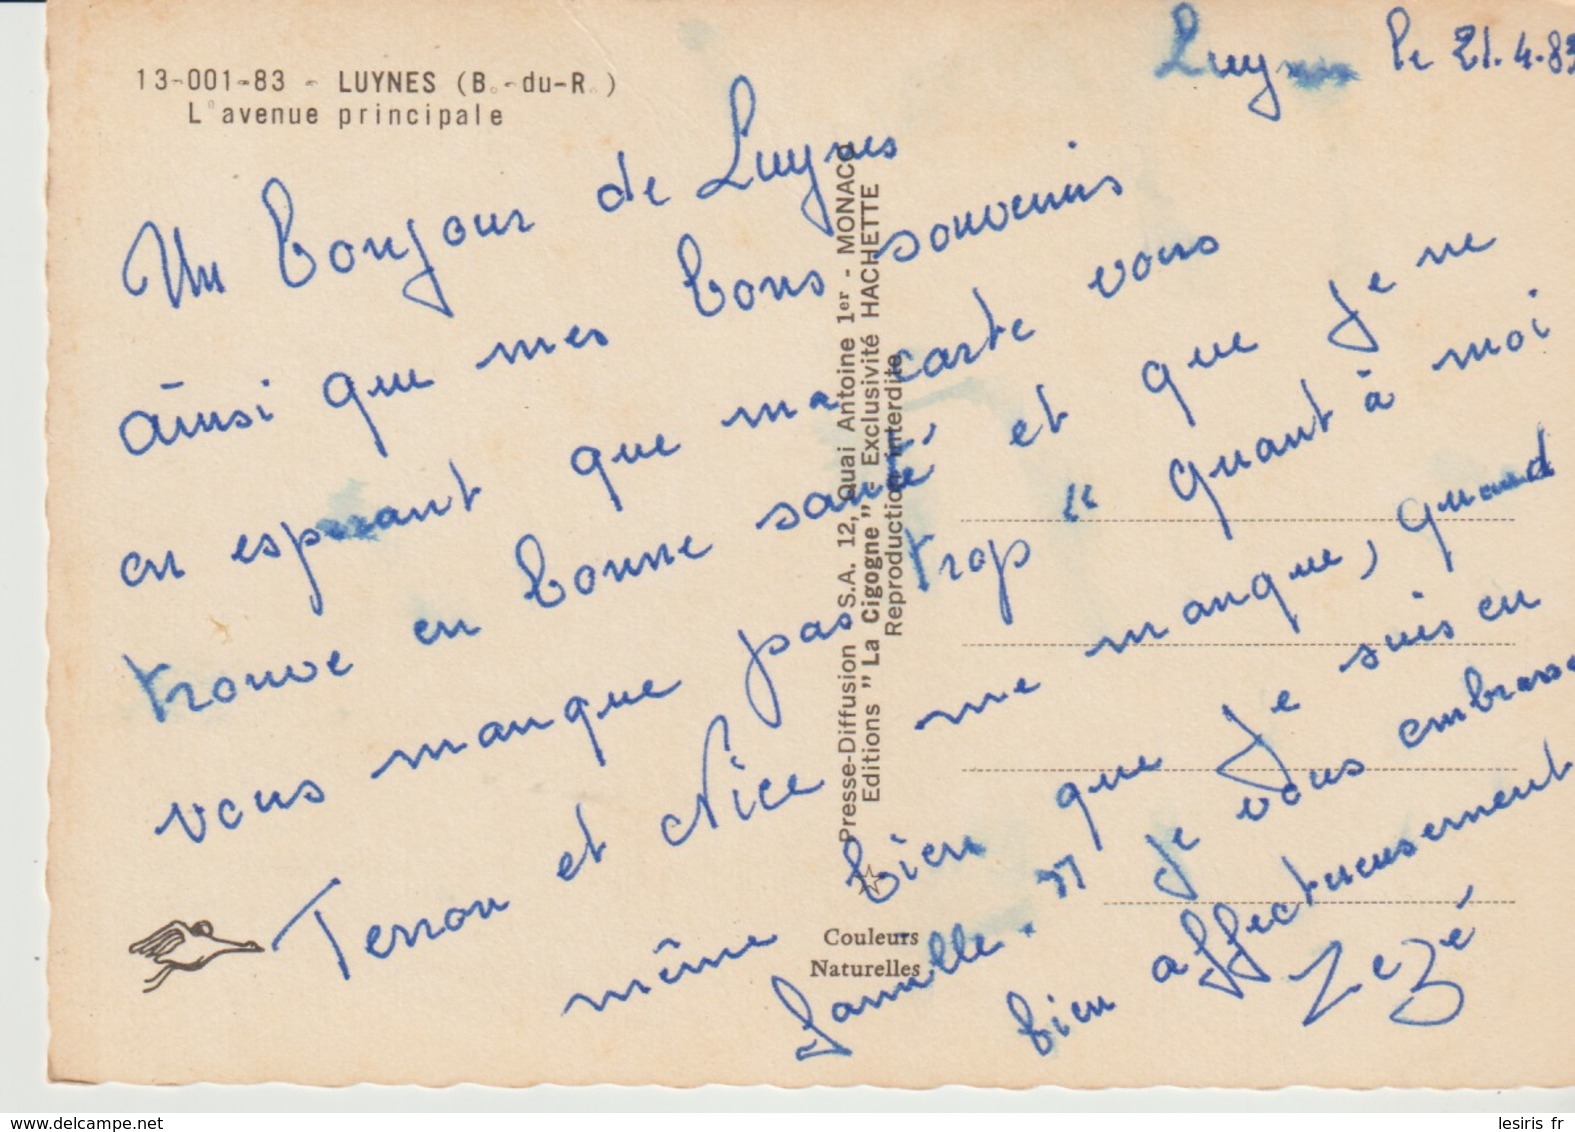 Luynes le 21.4.83
13-001-83 - LUYNES (B.-du-R.)
L'avenue principale
Un bonjour de Luynes
ainsi que mes bons souvenirs
en esperant que ma carte vous
trouve en bonne santé et que je ne
vous manque pas trop " quant à moi
Terron et Nice me manque, quand
même bien que je suis en
famille. " je vous embrasse
bien affectueusement
Zezé
Presse-Diffusion S.A. 12, Quai Antoine 1er - MONACO
Editions " La Cigogne " - Exclusivité HACHETTE
Reproduction interdite
Couleurs
Naturelles
delcampe.net
lesiris fr